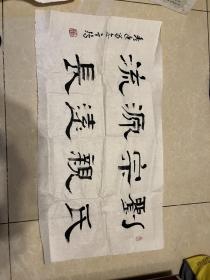 劉氏
宗親
源遠
流長